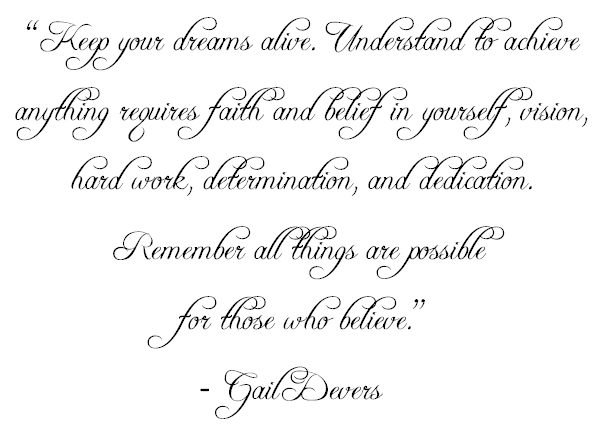 “Keep your dreams alive. Understand to achieve
anything requires faith and belief in yourself, vision,
hard work, determination, and dedication.
Remember all things are possible
for those who believe.”
- Gail Devers